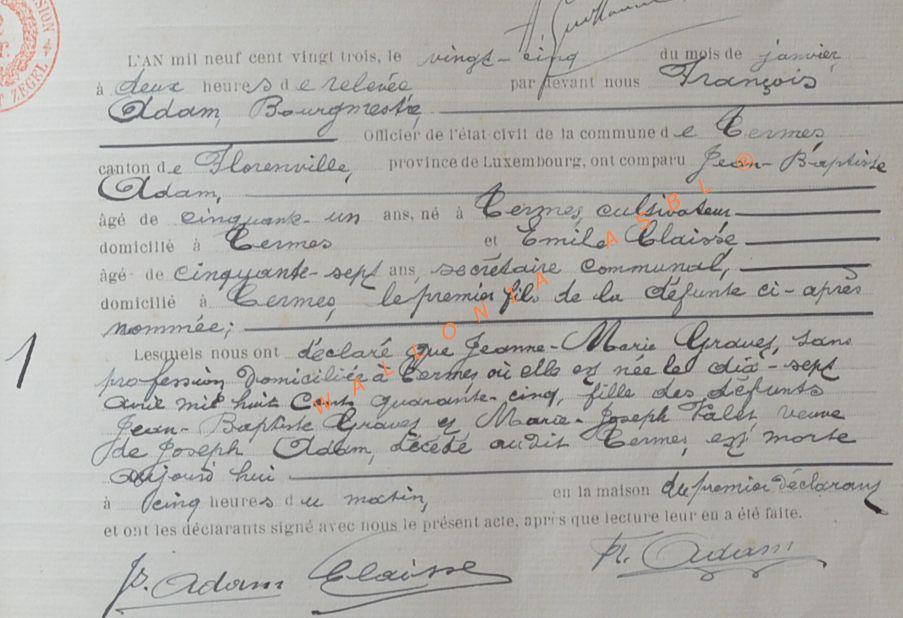 SION
T ZEGEL
Guillaume
L'AN mil neuf cent vingt trois, le vingt-cinq du mois de janvier
à deux heures de relevée par devant nous François
Adam, Bourgmestre,
Officier de l'état civil de la commune de Termes
canton de Florenville, province de Luxembourg, ont comparu Jean-Baptiste
Adam,
âgé de cinquante-un ans, né à Termes, cultivateur
domicilié à Termes et Emile Claisse,
âgé de cinquante-sept ans, secrétaire communal,
domicilié à Termes, le premier fils de la défunte ci-après
nommée;
1
Lesquels nous ont déclaré que Jeanne-Marie Graves, sans
profession domiciliée à Termes où elle est née le dix-sept
avril mil huit Cent quarante-cinq, fille des défunts
Jean-Baptiste Graves et Marie-Joseph Valet veuve
de Joseph Adam, décédé audit Termes, est morte
aujourd'hui
à cinq heures du matin, en la maison du premier déclarant
et ont les déclarants signé avec nous le présent acte, après que lecture leur en a été faite.
Jp. Adam Claisse Fr. Adam
WALLONIA ASBL ®